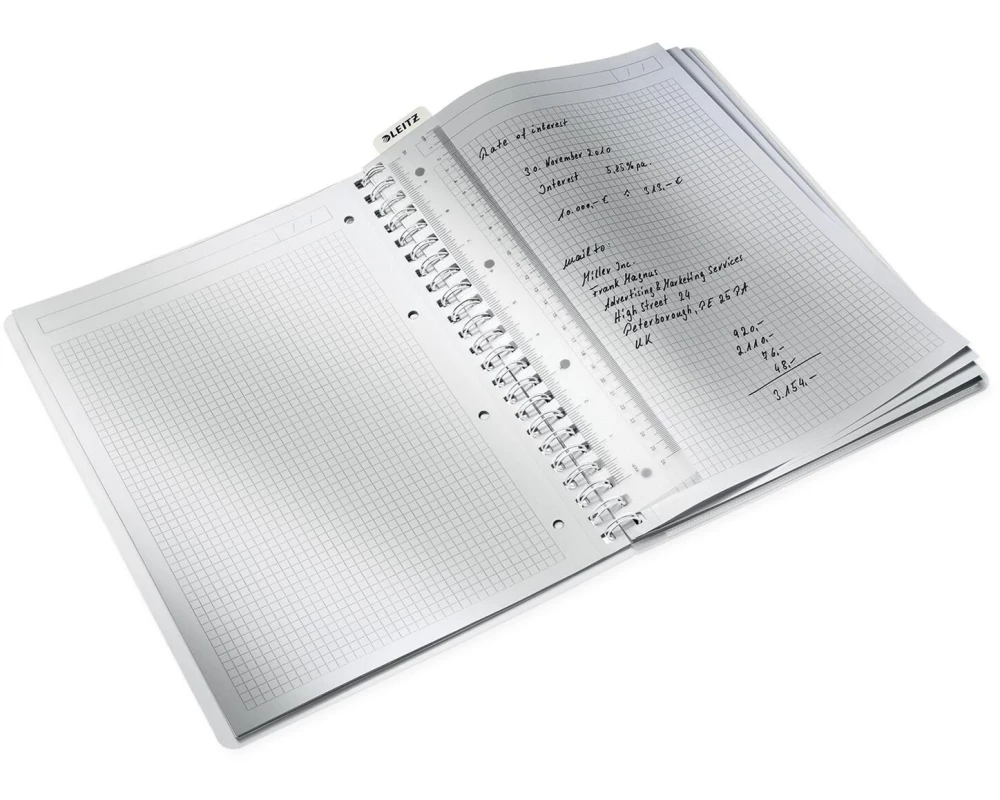 LEITZ
Rate of interest
30. November 2010
Interest 5,15% pa.
10.000,- € ÷ 313,- €
mail to:
Miller Inc.
Frank Magnus
Advertising & Marketing Services
High Street 24
Peterborough, PE 25 PA
UK
920,-
2.110,-
76,-
48,-
3.154,-